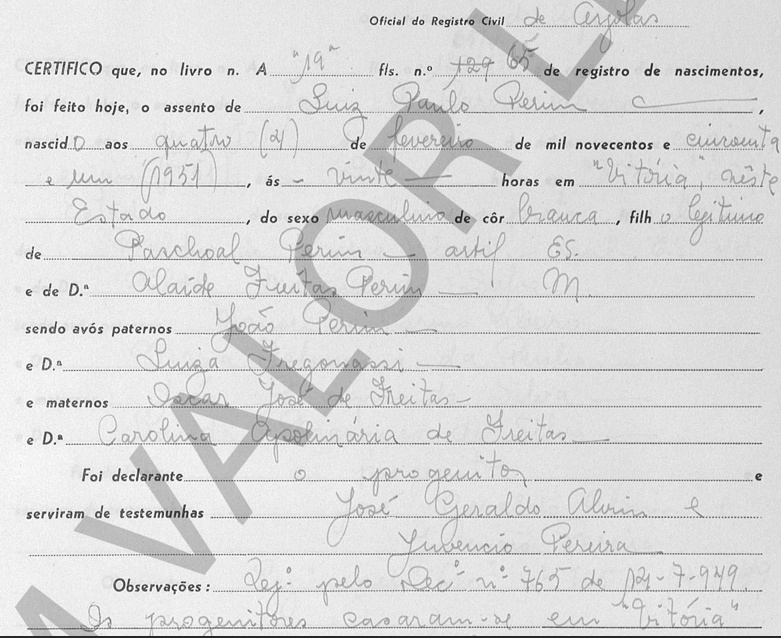 Oficial do Registro Civil de Argolas
CERTIFICO que, no livro n. A "19" fls. n.º 129 65 de registro de nascimentos,
foi feito hoje, o assento de Luiz Paulo Perim,
nascido aos quatro (4) de fevereiro de mil novecentos e cincoenta
e um (1951), ás - vinte - horas em "Vitória", nêste
Estado, do sexo masculino de côr branca, filho legitimo
de Paschoal Perim - ES.
e de D.ª Alaide Freitas Perim - M.
sendo avós paternos João Perim -
e D.ª Luiza Fregonassi -
e maternos Oscar José de Freitas -
e D.ª Carolina Apolinária de Freitas -
Foi declarante o progenitor e
serviram de testemunhas José Geraldo Alvim e
Juvencio Pereira
Observações: Reg.º pelo Dec.º nº 765 de 14-7-949.
Os progenitores casaram-se em "Vitória"
M VALOR L